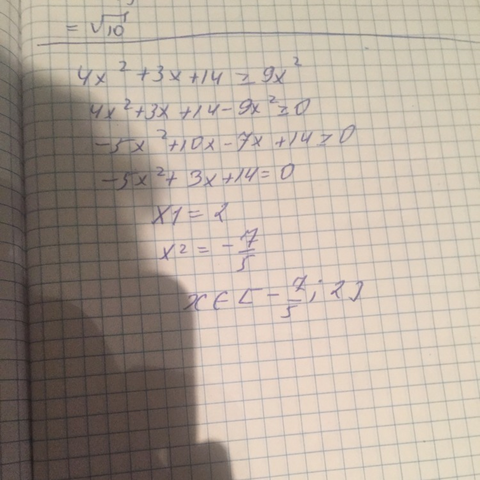 = √10
4x² + 3x + 14 ≥ 9x²
4x² + 3x + 14 - 9x² ≥ 0
-5x² + 10x - 7x + 14 ≥ 0
-5x² + 3x + 14 = 0
x1 = 2
x2 = -7/5
x ∈ [-7/5; 2]